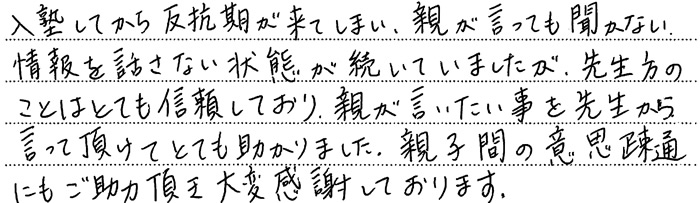 入塾してから反抗期が来てしまい、親が言っても聞かない、
情報を話さない状態が続いていましたが、先生方の
ことはとても信頼しており、親が言いたい事を先生から
言って頂けてとても助かりました。親子間の意思疎通
にもご助力頂き大変感謝しております。